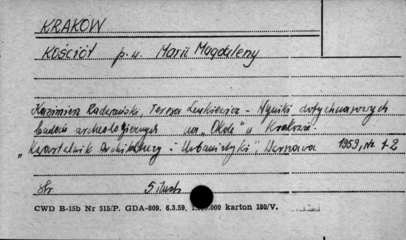 KRAKÓW
Kościół p.w. Marii Magdaleny
Kazimierz Radwański, Teresa Lenkiewicz - Wyniki dotychczasowych
badań archeologicznych na "Okole" w Krakowie.
"Kwartalnik Architektury i Urbanistyki", Warszawa 1959, nr 1-2
Str 5 ilustr
CWD B-15b Nr 515/P. GDA-809. 6.3.59. karton 180/V.